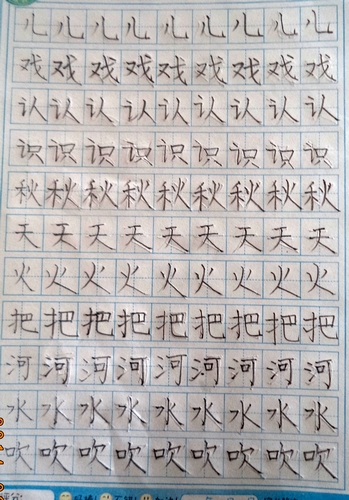 儿儿儿儿儿儿儿儿儿
戏戏戏戏戏戏戏戏戏
认认认认认认认认认
识识识识识识识识识
秋秋秋秋秋秋秋秋秋
天天天天天天天天天
火火火火火火火火火
把把把把把把把把把
河河河河河河河河河
水水水水水水水水水
吹吹吹吹吹吹吹吹吹